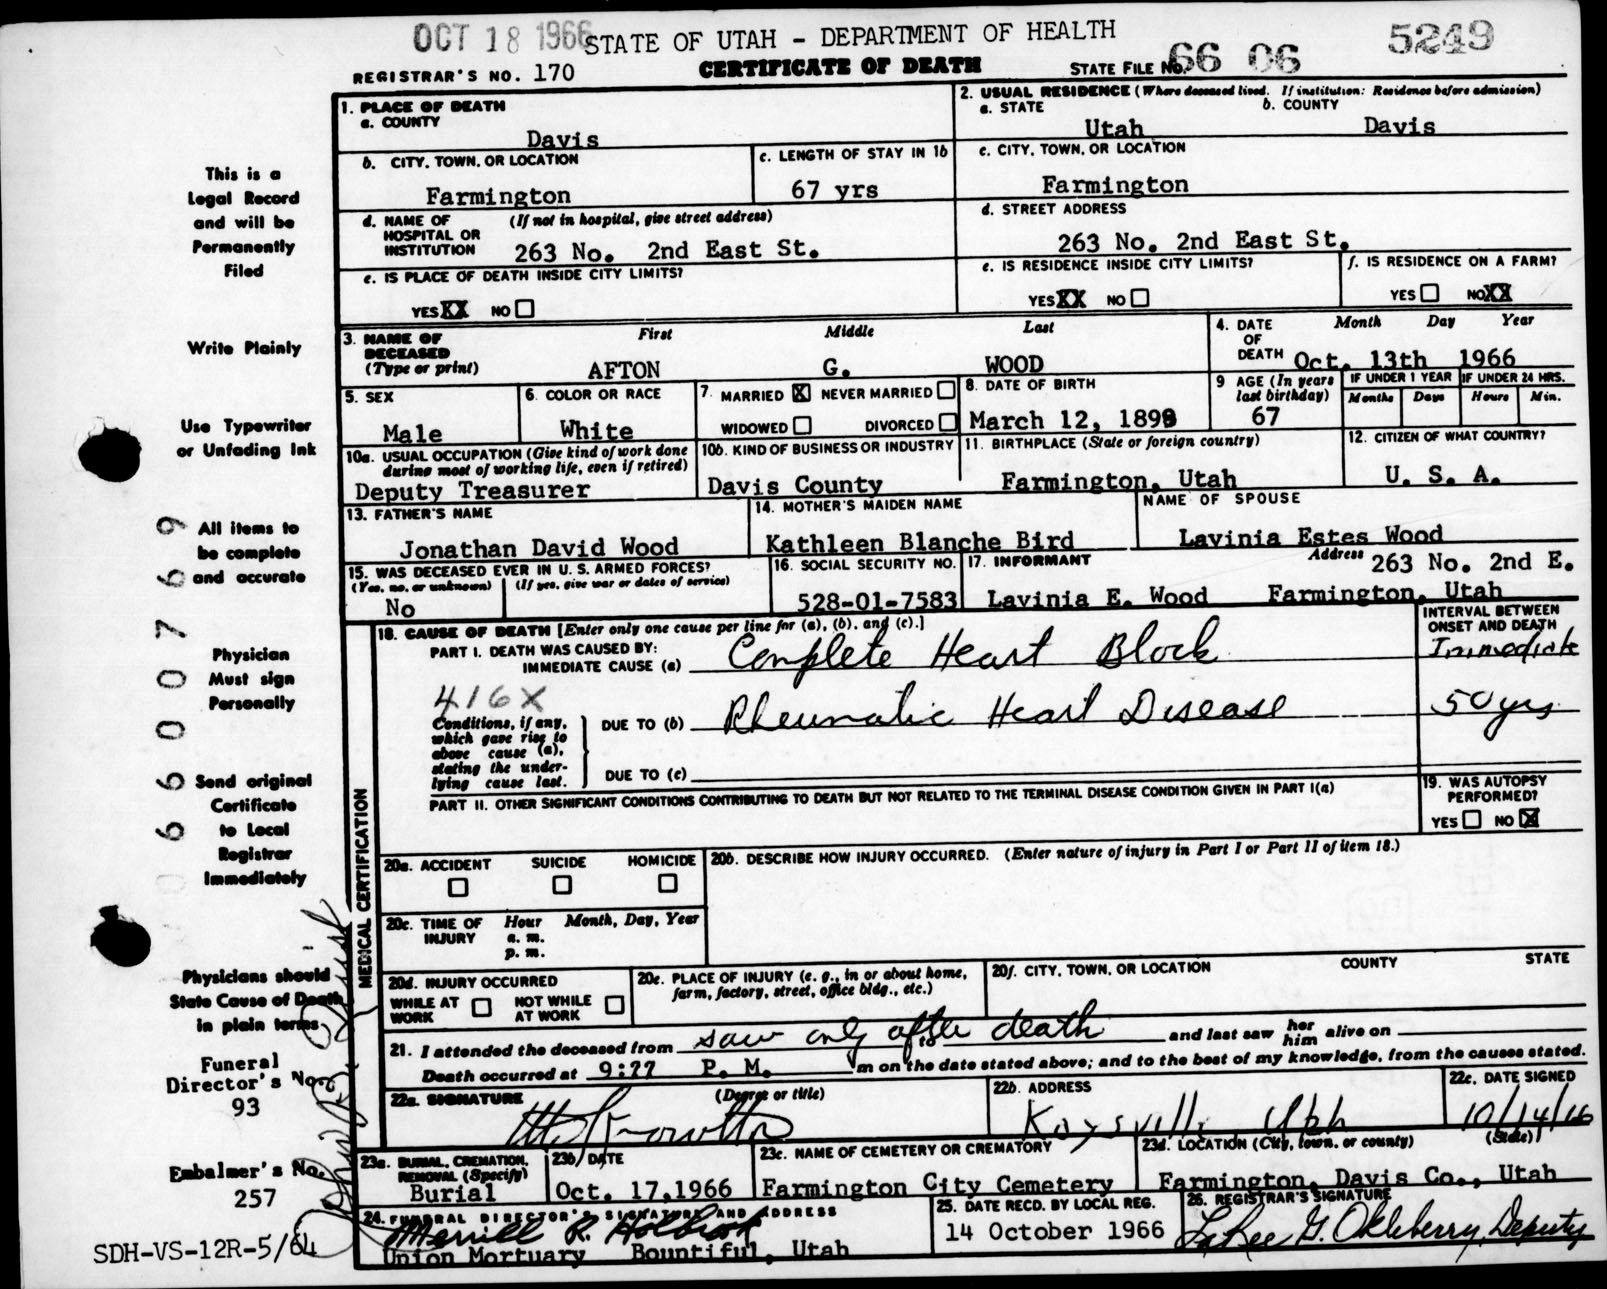 OCT 18 1966 STATE OF UTAH - DEPARTMENT OF HEALTH 5249
REGISTRAR'S NO. 170 CERTIFICATE OF DEATH STATE FILE NO. 66 06
1. PLACE OF DEATH
a. COUNTY
Davis
2. USUAL RESIDENCE (Where deceased lived. If institution: Residence before admission)
a. STATE b. COUNTY
Utah Davis
b. CITY, TOWN, OR LOCATION
Farmington
c. LENGTH OF STAY IN 1b
67 yrs
c. CITY, TOWN, OR LOCATION
Farmington
d. NAME OF (If not in hospital, give street address)
HOSPITAL OR
INSTITUTION 263 No. 2nd East St.
d. STREET ADDRESS
263 No. 2nd East St.
e. IS PLACE OF DEATH INSIDE CITY LIMITS?
YES XX NO
e. IS RESIDENCE INSIDE CITY LIMITS?
YES XX NO
f. IS RESIDENCE ON A FARM?
YES NO XX
3. NAME OF First Middle Last
DECEASED
(Type or print) AFTON G. WOOD
4. DATE Month Day Year
OF
DEATH Oct. 13th 1966
5. SEX
Male
6. COLOR OR RACE
White
7. MARRIED X NEVER MARRIED
WIDOWED DIVORCED
8. DATE OF BIRTH
March 12, 1899
9 AGE (In years
last birthday)
67
IF UNDER 1 YEAR IF UNDER 24 HRS.
Months Days Hours Min.
10a. USUAL OCCUPATION (Give kind of work done
during most of working life, even if retired)
Deputy Treasurer
10b. KIND OF BUSINESS OR INDUSTRY
Davis County
11. BIRTHPLACE (State or foreign country)
Farmington, Utah
12. CITIZEN OF WHAT COUNTRY?
U. S. A.
13. FATHER'S NAME
Jonathan David Wood
14. MOTHER'S MAIDEN NAME
Kathleen Blanche Bird
NAME OF SPOUSE
Lavinia Estes Wood
15. WAS DECEASED EVER IN U. S. ARMED FORCES?
(Yes, no, or unknown) (If yes, give war or dates of service)
No
16. SOCIAL SECURITY NO.
528-01-7583
17. INFORMANT Address 263 No. 2nd E.
Lavinia E. Wood Farmington, Utah
MEDICAL CERTIFICATION
18. CAUSE OF DEATH [Enter only one cause per line for (a), (b), and (c).]
INTERVAL BETWEEN
ONSET AND DEATH
PART I. DEATH WAS CAUSED BY:
IMMEDIATE CAUSE (a) Complete Heart Block Immediate
416X
Conditions, if any,
which gave rise to
above cause (a),
stating the under-
lying cause last.
DUE TO (b) Rheumatic Heart Disease 50 yrs
DUE TO (c)
PART II. OTHER SIGNIFICANT CONDITIONS CONTRIBUTING TO DEATH BUT NOT RELATED TO THE TERMINAL DISEASE CONDITION GIVEN IN PART I(a)
19. WAS AUTOPSY
PERFORMED?
YES NO X
20a. ACCIDENT SUICIDE HOMICIDE
20b. DESCRIBE HOW INJURY OCCURRED. (Enter nature of injury in Part I or Part II of item 18.)
20c. TIME OF Hour Month, Day, Year
INJURY a. m.
p. m.
20d. INJURY OCCURRED
WHILE AT NOT WHILE
WORK AT WORK
20e. PLACE OF INJURY (e. g., in or about home,
farm, factory, street, office bldg., etc.)
20f. CITY, TOWN, OR LOCATION COUNTY STATE
21. I attended the deceased from saw only after death to and last saw her him alive on
Death occurred at 9:?? P. M. m on the date stated above; and to the best of my knowledge, from the causes stated.
22a. SIGNATURE (Degree or title)
22b. ADDRESS
Kaysville Utah
22c. DATE SIGNED
10/14/66
23a. BURIAL, CREMATION,
REMOVAL (Specify)
Burial
23b. DATE
Oct. 17,1966
23c. NAME OF CEMETERY OR CREMATORY
Farmington City Cemetery
23d. LOCATION (City, town, or county) (State)
Farmington, Davis Co., Utah
24. FUNERAL DIRECTOR'S SIGNATURE AND ADDRESS
Merrill R. Holbrook
Union Mortuary Bountiful, Utah
25. DATE RECD. BY LOCAL REG.
14 October 1966
26. REGISTRAR'S SIGNATURE
LaRee G. Okleberry, Deputy
This is a
Legal Record
and will be
Permanently
Filed
Write Plainly
Use Typewriter
or Unfading Ink
All items to
be complete
and accurate
Physician
Must sign
Personally
Send original
Certificate
to Local
Registrar
Immediately
Physicians should
State Cause of Death
in plain terms
Funeral
Director's No.
93
Embalmer's No.
257
SDH-VS-12R-5/64